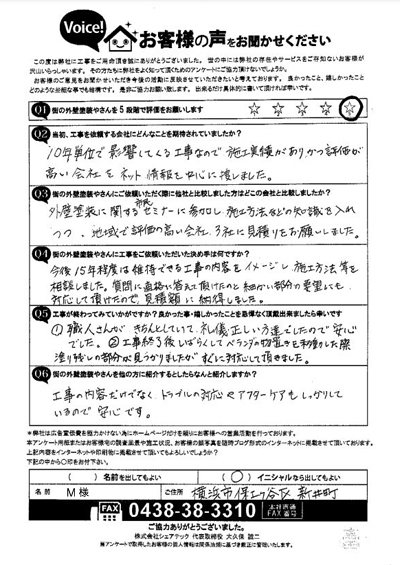 Voice!
お客様の声をお聞かせください
この度は弊社に工事をご用命頂き誠にありがとうございました。世の中には弊社の存在やサービスをご存知ないお客様が
沢山いらっしゃいます。その方たちに弊社をよく知って頂くためのアンケートにご協力頂けないでしょうか。
お客様のご意見をお聞かせいただき今後の活動に反映させていただきたいと考えております。良かったこと、嬉しかったこと
どのような些細な事でも結構です。是非ご協力お願い致します。出来るだけ具体的に書いて頂ければ幸いです。
Q1 街の外壁塗装やさんを5段階で評価をお願いします ☆ ☆ ☆ ☆ ☆
Q2 当初、工事を依頼する会社にどんなことを期待されていましたか?
10年単位で影響してくる工事なので施工実績がありかつ評価が
高い会社をネット情報を中心に探しました。
Q3 街の外壁塗装やさんにご依頼いただく際に他社と比較しました方はどこの会社と比較しましたか?
外壁塗装に関する市民セミナーに参加し、施工方法などの知識を入れ
つつ、地域で評価の高い会社、3社に見積りをお願いしました。
Q4 街の外壁塗装やさんに工事をご依頼いただいた決め手は何ですか?
今後15年程度は維持できる工事の内容をイメージし、施工方法等を
相談しました。質問に直格に答えて頂けたと細かい部分の要望にも
対応して頂けたので、見積額に納得しました。
Q5 工事が終わってみていかがですか?良かった事・嬉しかったことを忌憚なく頂戴出来ましたら幸いです
①職人さんがきちんとしていて、礼儀正しい方達でしたので安心
でした。②工事終了後しばらくしてベランダの物置きを移動した際
塗り残しの部分が見つかりましたがすぐに対応して頂きました。
Q6 街の外壁塗装やさんを他の方に紹介するとしたらなんと紹介しますか?
工事の内容だけでなく、トラブルの対応やアフターケアもしっかりして
いるので安心です。
★弊社は広告宣伝費を極力かけない為にホームページだけを頼りにお客様への営業活動を行っております。
本アンケート用紙またはお客様宅の調査風景や施工状況、お客様の顔写真を随時ブログ形式のインターネットに掲載させて頂いております。
上記内容をインターネットや印刷物に掲載させて頂いてもよろしいでしょうか?
下記の中から○印をお付け下さい。
( )名前を出してもよい (○)イニシャルなら出してもよい
名前 M様 ご住所 横浜市保土ヶ谷区新井町
FAX 0438-38-3310 本社直通FAX番号
ご協力ありがとうございました。
株式会社シェアテック 代表取締役 大久保 誠二
※アンケートで取得したお客様の個人情報は関係法規に基づき厳正に管理いたします。